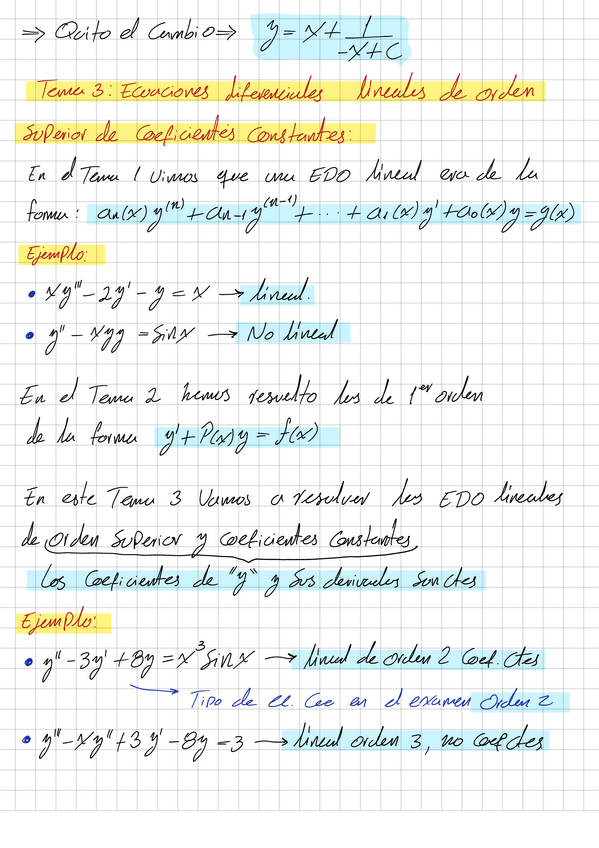 ⇒ Quito el Cambio ⇒ y = x + 1/(-x+C)
Tema 3: Ecuaciones diferenciales lineales de orden
Superior de Coeficientes Constantes:
En el Tema 1 vimos que una EDO lineal era de la
forma: an(x) y^(n) + an-1 y^(n-1) + ... + a1(x) y' + a0(x) y = g(x)
Ejemplo:
• xy''' - 2y' - y = x → lineal.
• y'' - xyy = Sinx → No lineal
En el Tema 2 hemos resuelto las de 1er orden
de la forma y' + P(x)y = f(x)
En este Tema 3 Vamos a resolver las EDO lineales
de orden Superior y coeficientes Constantes
Los Coeficientes de "y" y Sus derivadas Son ctes
Ejemplo:
• y'' - 3y' + 8y = x³ Sinx → lineal de orden 2 Coef. Ctes
→ Tipo de en el examen Orden 2
• y''' - xy'' + 3y' - 8y = 3 → lineal orden 3, no coef ctes